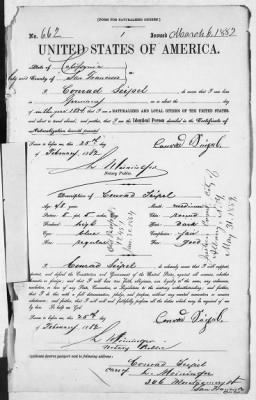 [FORM FOR NATURALIZED CITIZEN.]
No. 662 Issued March 6, 1882
UNITED STATES OF AMERICA.
State of California
County of San Francisco
I Conrad Seipel do swear that I was born
in Germany on or about the day
of in the year 18 that I am a NATURALIZED AND LOYAL CITIZEN OF THE UNITED STATES,
and about to travel abroad, and further, that I am the Identical Person described in the Certificate of
Naturalization herewith presented.
Sworn to before me, this 25th
day of February 1882 Conrad Seipel
Notary Public.
Description of Conrad Seipel
Age: 48 Mouth: medium
Stature: 5 feet 5 Chin: round
Forehead: high Hair: dark
Eyes: blue Complexion: fair
Nose: regular Face: good
I Conrad Seipel do solemnly swear that I will support,
protect, and defend the Constitution and Government of the United States, against all enemies, whether
domestic or foreign; and that I will bear true faith, allegiance, and loyalty to the same, any ordinance,
resolution, or law of any State, Convention, or Legislature to the contrary notwithstanding; and further,
that I do this with a full determination, pledge, and purpose, without any mental reservation or evasion
whatsoever; and further, that I will well and faithfully perform all the duties which may be required of me
by law. So help me God.
Sworn to before me, this 25th
day of February 1882 Conrad Seipel
Notary Public
Applicants desires passport sent to following address:
Conrad Seipel
care of
306 Montgomery st
San Francisco